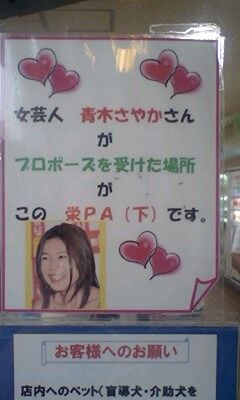 女芸人 青木さやかさん
が
プロポーズを受けた場所
が
この 栄PA(下)です。
お客様へのお願い
店内へのペット(盲導犬・介助犬を